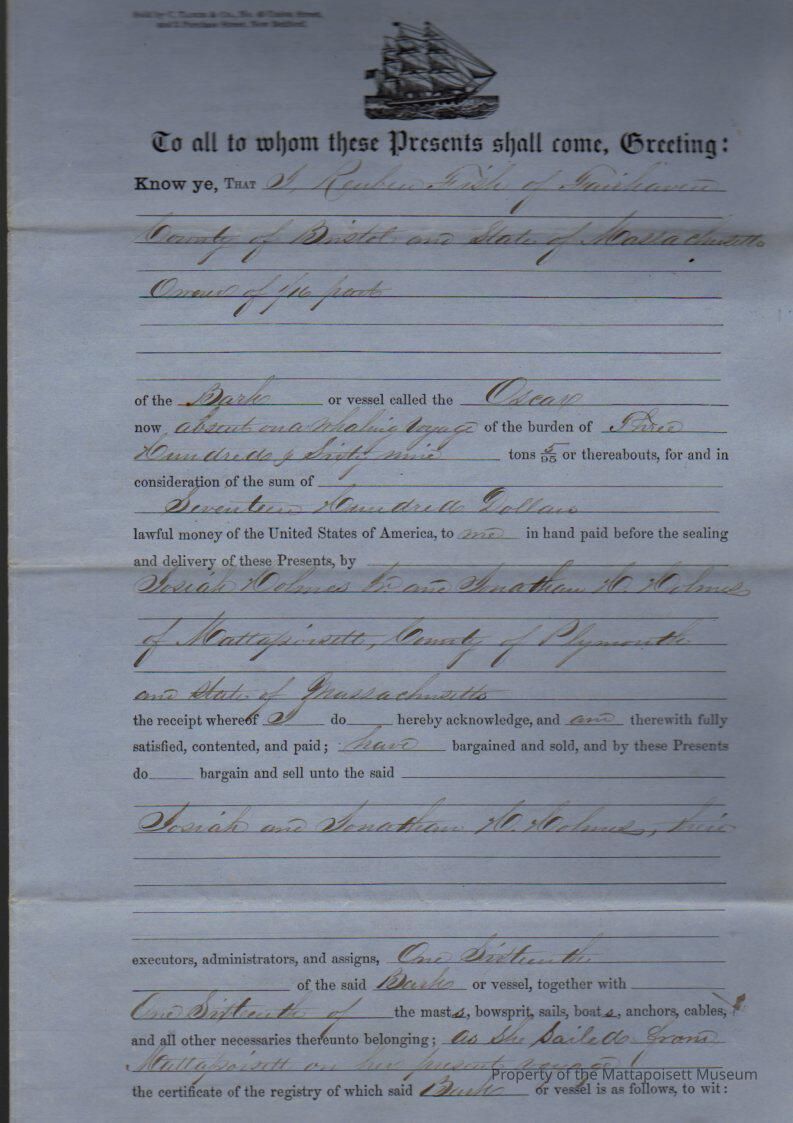 Sold by C. Taber & Co., No. 45 Union Street,
and 2 Purchase Street, New Bedford.
To all to whom these Presents shall come, Greeting:
Know ye, THAT I, Reuben Fish of Fairhaven
County of Bristol and State of Massachusetts
Owner of 1/16 part
of the Bark or vessel called the Oscar
now absent on a Whaling Voyage of the burden of Three
Hundred & Sixty nine tons 5/95 or thereabouts, for and in
consideration of the sum of
Seventeen Hundred Dollars
lawful money of the United States of America, to me in hand paid before the sealing
and delivery of these Presents, by
Josiah Holmes Jr and Jonathan H. Holmes
of Mattapoisett, County of Plymouth
and State of Massachusetts
the receipt whereof I do hereby acknowledge, and am therewith fully
satisfied, contented, and paid; have bargained and sold, and by these Presents
do bargain and sell unto the said
Josiah and Jonathan H. Holmes, their
executors, administrators, and assigns, One Sixteenth
of the said Bark or vessel, together with
One Sixteenth of the masts, bowsprit, sails, boats, anchors, cables,
and all other necessaries thereunto belonging; as she Sailed from
Mattapoisett on her present voyage
Property of the Mattapoisett Museum
the certificate of the registry of which said Bark or vessel is as follows, to wit: